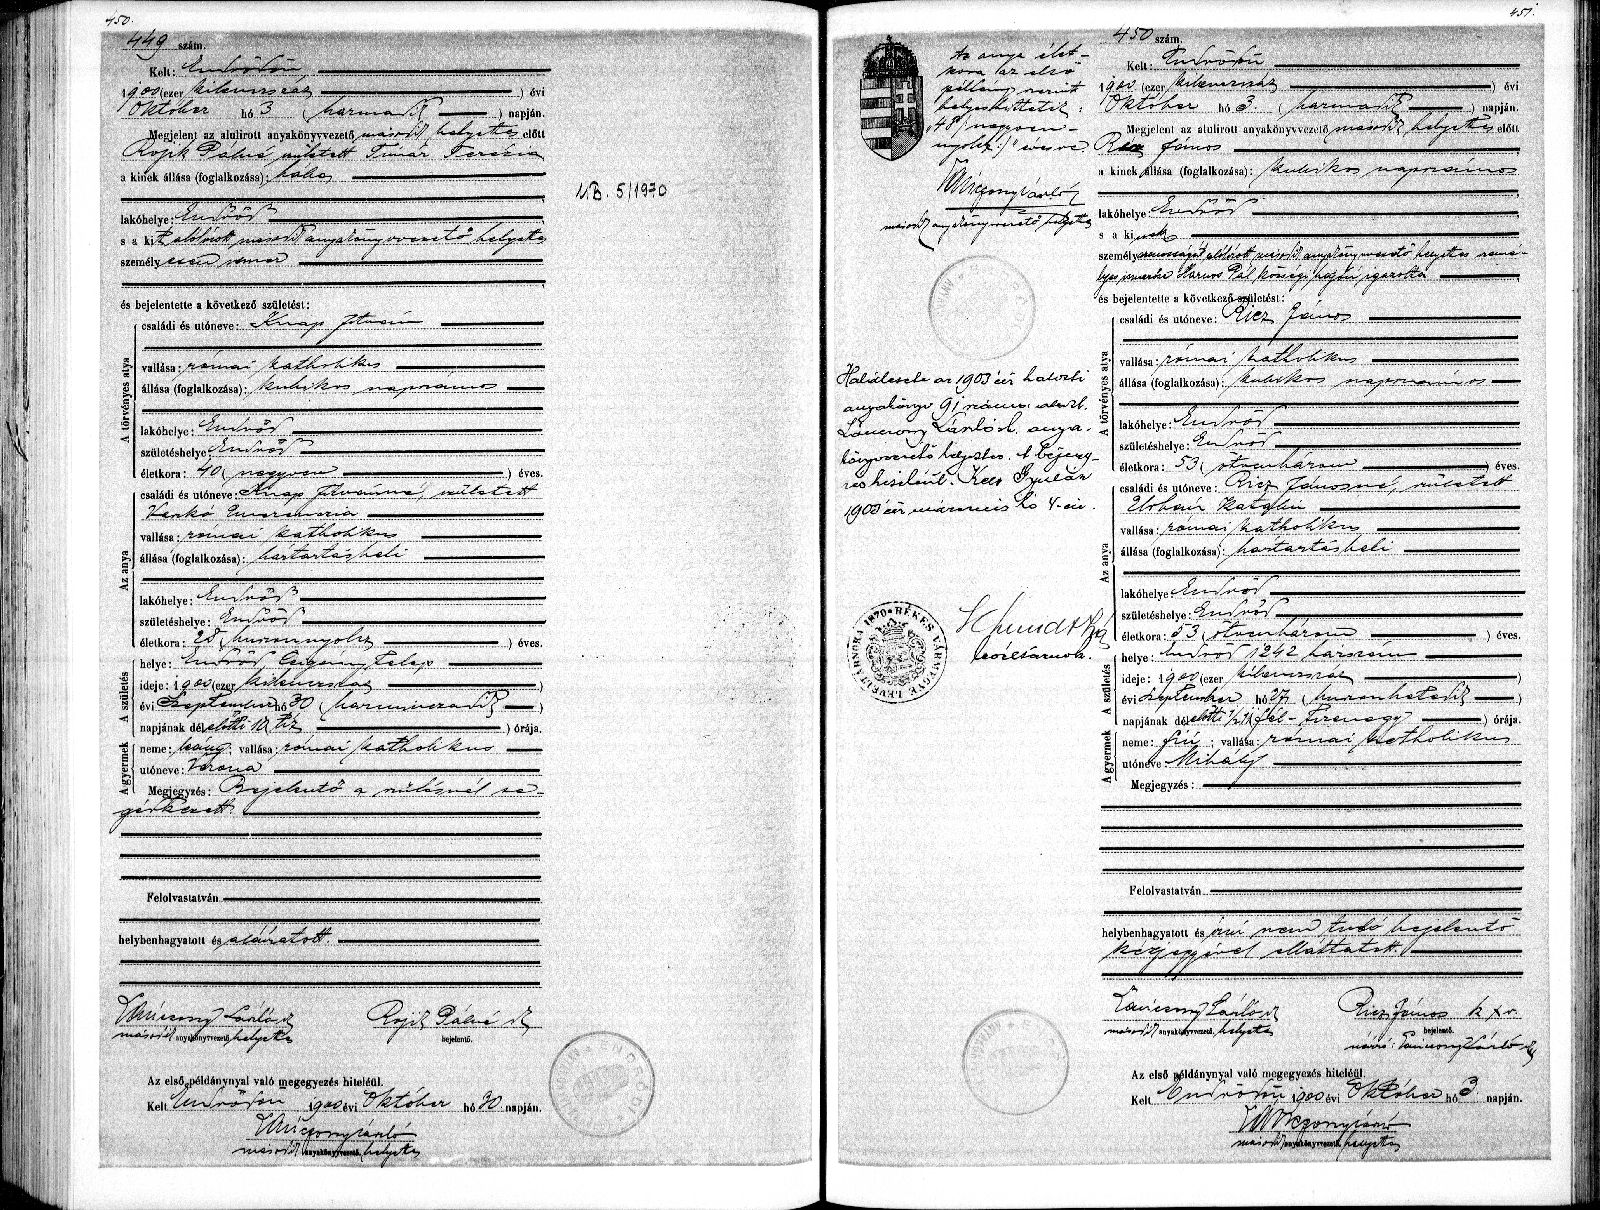 450.
449 szám.
Kelt: Endrődön,
1900 (ezer kilenczszáz ) évi
Október hó 3 (harmadik ) napján.
Megjelent az alulirott anyakönyvvezető második helyettes előtt
Rojik Pálné született Timár Terézia
a kinek állása (foglalkozása): bába
lakóhelye: Endrőd
s a kit alólírott második anyakönyvvezető helyettes
személyesen ismer
és bejelentette a következő születést:
A törvényes atya
családi és utóneve: Knap István
vallása: római katholikus
állása (foglalkozása): kubikos napszámos
lakóhelye: Endrőd
születéshelye: Endrőd
életkora: 40 (negyven ) éves.
Az anya
családi és utóneve: Knap Istvánné, született
vallása: római katholikus
állása (foglalkozása): háztartásbeli
lakóhelye: Endrőd
születéshelye: Endrőd
életkora: 28 (huszonnyolcz ) éves.
A születés
helye: Endrőd Czigány telep
ideje: 1900 (ezer kilenczszáz )
évi Szeptember hó 30 (harminczadik )
napjának dél előtti 10 tiz ( ) órája.
A gyermek
neme: leány; vallása: római katholikus
utóneve: Verona
Megjegyzés: Bejelentő a szülésnél se-
gédkezett.
Felolvastatván
helybenhagyatott és aláiratott.
Tánczony László
második anyakönyvvezető helyettes
Rojik Pálné
bejelentő.
Az első példánynyal való megegyezés hiteléül.
Kelt Endrődön 1900 évi Október hó 30 napján.
második anyakönyvvezető helyettes
5/1970
451.
Az anya élet-
kora az első
példány szerint
helyesbittetik:
48 /:negyven-
nyolcz:/ évesre.
második anyakönyvvezető helyettes
Halálesete az 1903 évi halotti
anyakönyv 91 száma alatt.
anya-
könyvvezető helyettes. A bejegy-
zés hiteléül: Kelt Gyulán
1903 évi márczius hó 4-én.
BÉKÉS VÁRMEGYE LEVÉLTÁRNOKA 1870
450 szám.
Kelt: Endrődön
1900 (ezer kilenczszáz ) évi
Október hó 3. (harmadik ) napján.
Megjelent az alulirott anyakönyvvezető második helyettes előtt
Ricz János
a kinek állása (foglalkozása): kubikos napszámos
lakóhelye: Endrőd
s a kinek
személyazonosságát alólírott második anyakönyvvezető helyettes szemé-
lyes ismerőse Harnos Pál községi hajdu igazolta
és bejelentette a következő születést:
A törvényes atya
családi és utóneve: Ricz János
vallása: római katholikus
állása (foglalkozása): kubikos napszámos
lakóhelye: Endrőd
születéshelye: Endrőd
életkora: 53 (ötvenhárom ) éves.
Az anya
családi és utóneve: Ricz Jánosné, született
Urbán Katalin
vallása: római katholikus
állása (foglalkozása): háztartásbeli
lakóhelye: Endrőd
születéshelye: Endrőd
életkora: 53 (ötvenhárom ) éves.
A születés
helye: Endrőd 1242 házszám
ideje: 1900 (ezer kilenczszáz )
évi Szeptember hó 27 (huszonhetedik )
napjának dél előtti 1/2 11 (fél-tizenegy ) órája.
A gyermek
neme: fiú; vallása: római katholikus
utóneve Mihály
Megjegyzés:
Felolvastatván
helybenhagyatott és írni nem tudó bejelentő
kézjegyével elláttatott.
Tánczony László
második anyakönyvvezető helyettes
Ricz János k x v.
bejelentő.
Az első példánynyal való megegyezés hiteléül.
Kelt Endrődön 1900 évi Október hó 3. napján.
második anyakönyvvezető helyettes